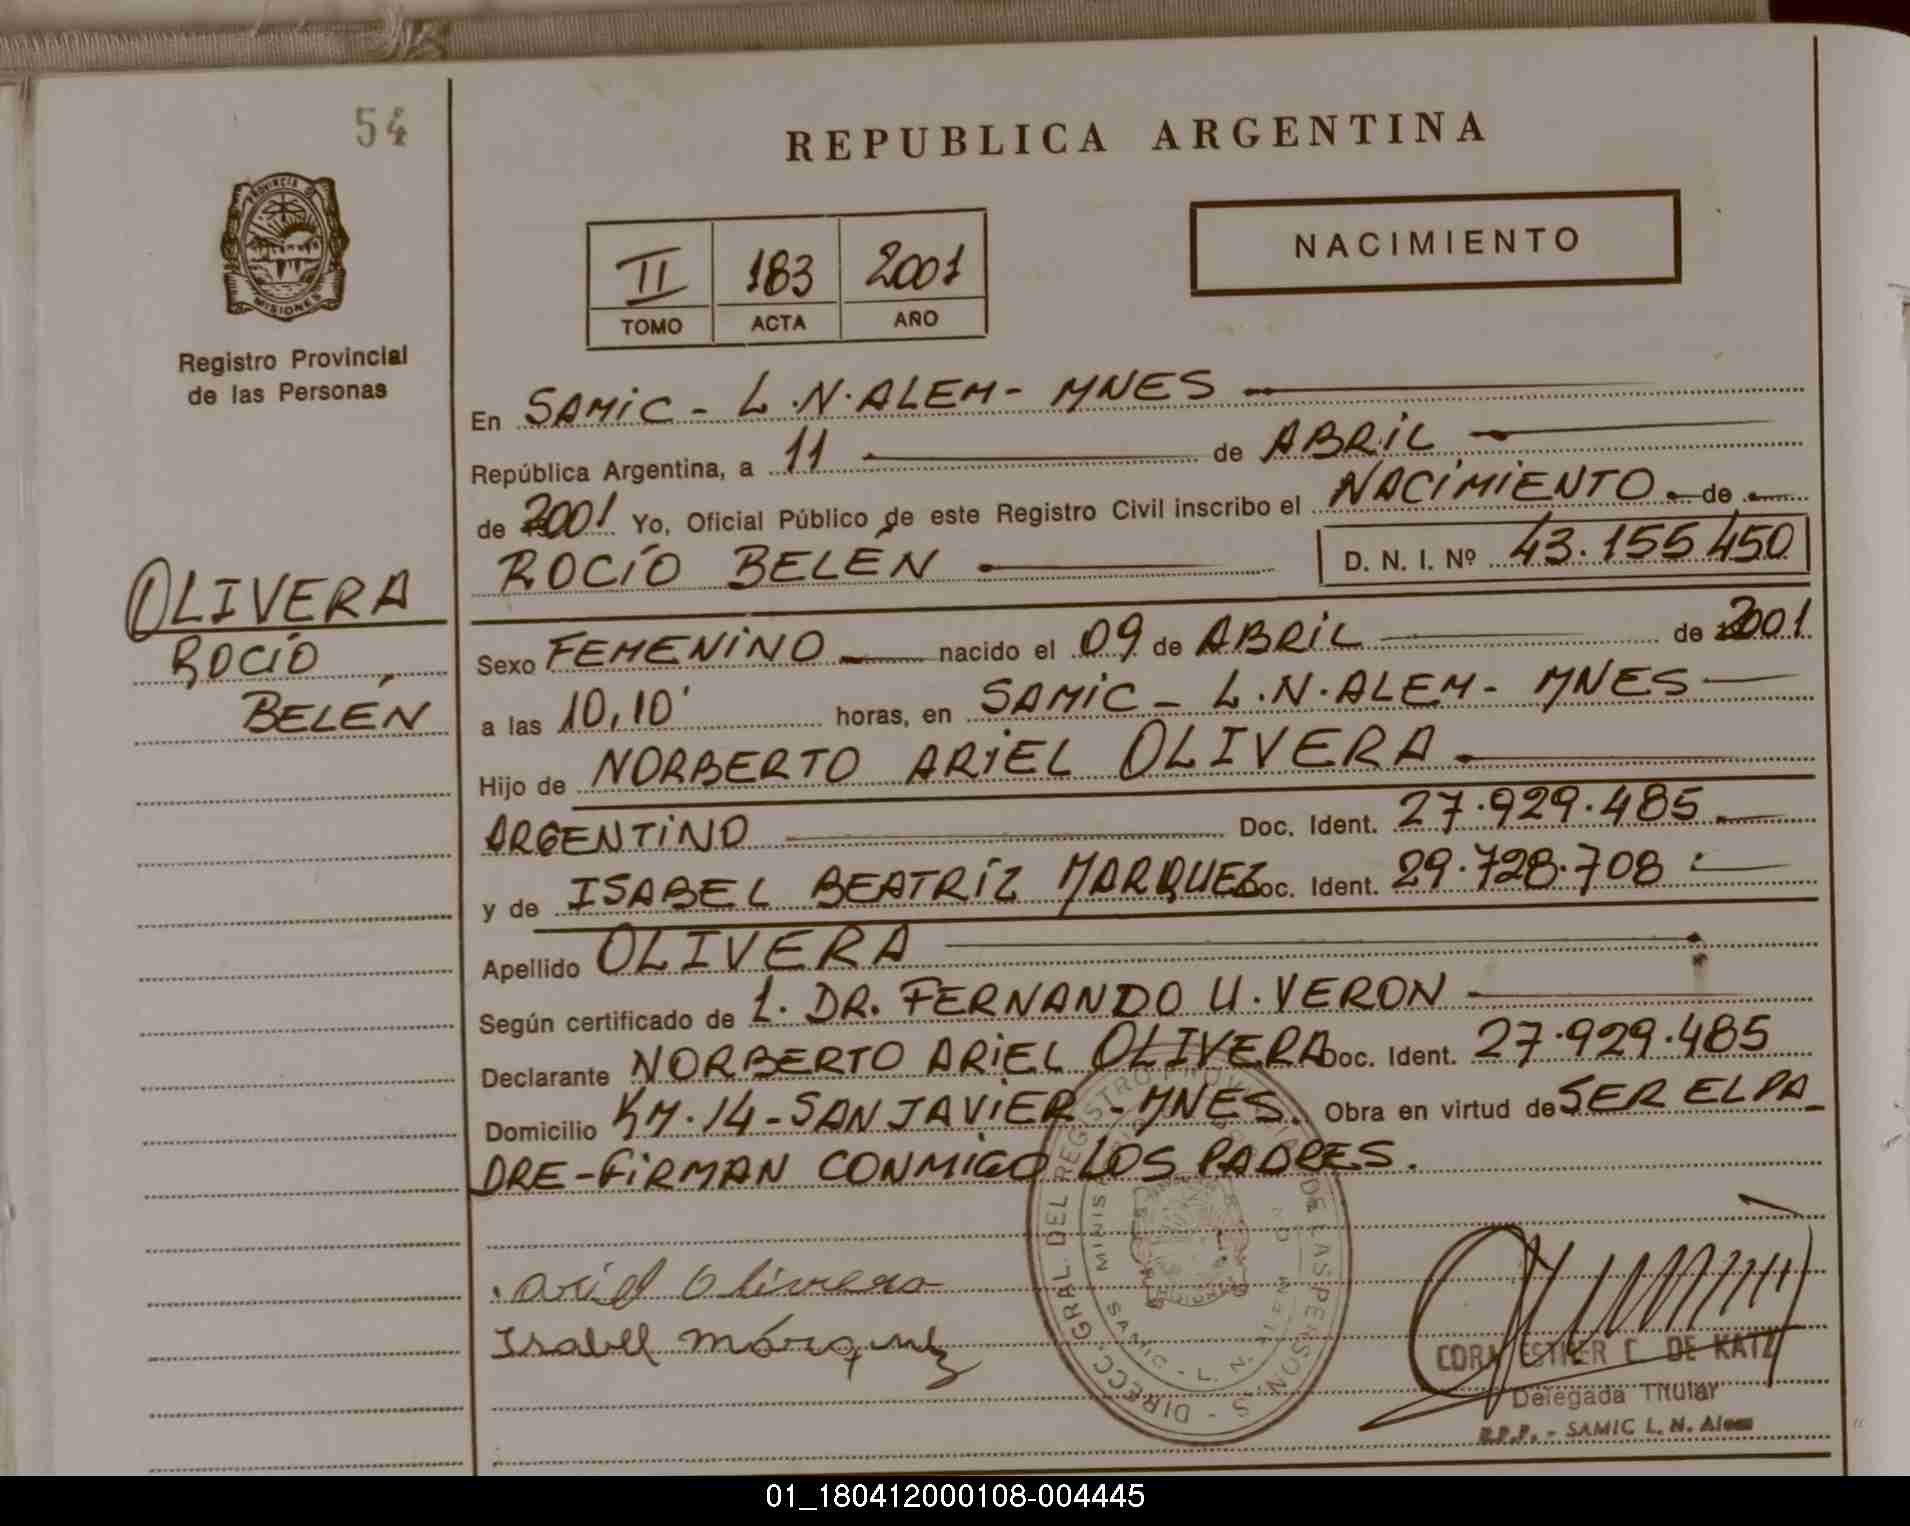 54
REPUBLICA ARGENTINA
PROVINCIA DE MISIONES
Registro Provincial
de las Personas
II 183 2001
TOMO ACTA AÑO
NACIMIENTO
En SAMIC - L.N. ALEM - MNES
República Argentina, a 11 de ABRIL
de 2001 Yo, Oficial Público de este Registro Civil inscribo el NACIMIENTO de
ROCÍO BELÉN D. N. I. Nº 43.155.450
OLIVERA
ROCÍO
BELÉN
Sexo FEMENINO nacido el 09 de ABRIL de 2001
a las 10,10' horas, en SAMIC - L.N. ALEM - MNES
Hijo de NORBERTO ARIEL OLIVERA
ARGENTINO Doc. Ident. 27.929.485
y de ISABEL BEATRÍZ MARQUEZ Doc. Ident. 29.728.708
Apellido OLIVERA
Según certificado de 1. DR. FERNANDO U. VERON
Declarante NORBERTO ARIEL OLIVERA Doc. Ident. 27.929.485
Domicilio KM.14 - SAN JAVIER - MNES. Obra en virtud de SER EL PA_
DRE - FIRMAN CONMIGO LOS PADRES.
Ariel Olivera
Isabel Márquez
DIRECC. GRAL. DEL REGISTRO PROVINCIAL DE LAS PERSONAS
SAMIC - L. N.
CORA ESTHER C. DE KATZ
Delegada Titular
R.P.P. - SAMIC L. N. Alem
01_180412000108-004445